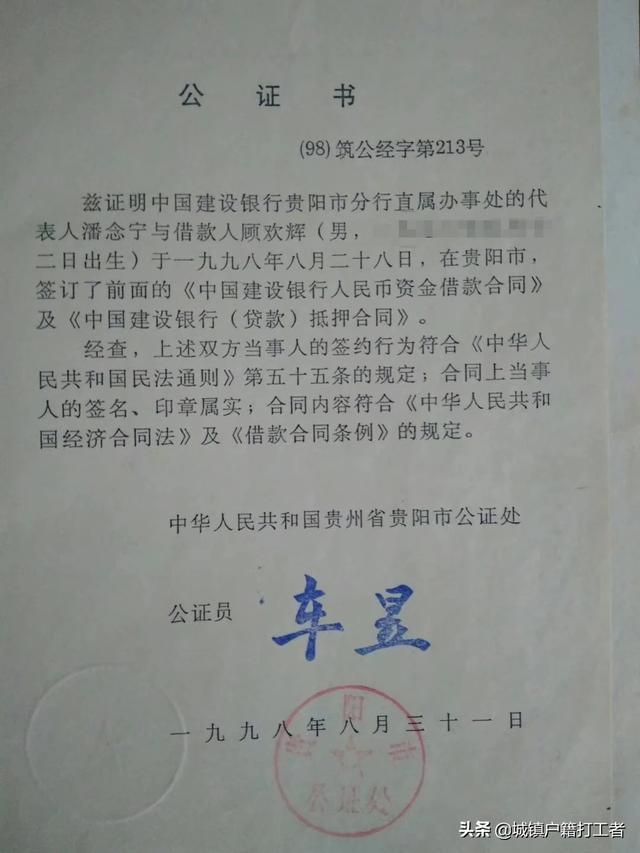 公证书
(98)筑公经字第213号
兹证明中国建设银行贵阳市分行直属办事处的代
表人潘念宁与借款人顾欢辉（男，
二日出生）于一九九八年八月二十八日，在贵阳市，
签订了前面的《中国建设银行人民币资金借款合同》
及《中国建设银行（贷款）抵押合同》。
经查，上述双方当事人的签约行为符合《中华人
民共和国民法通则》第五十五条的规定；合同上当事
人的签名、印章属实；合同内容符合《中华人民共和
国经济合同法》及《借款合同条例》的规定。
中华人民共和国贵州省贵阳市公证处
公证员 车昱
一九九八年八月三十一日
贵阳市
公证处
头条 @城镇户籍打工者